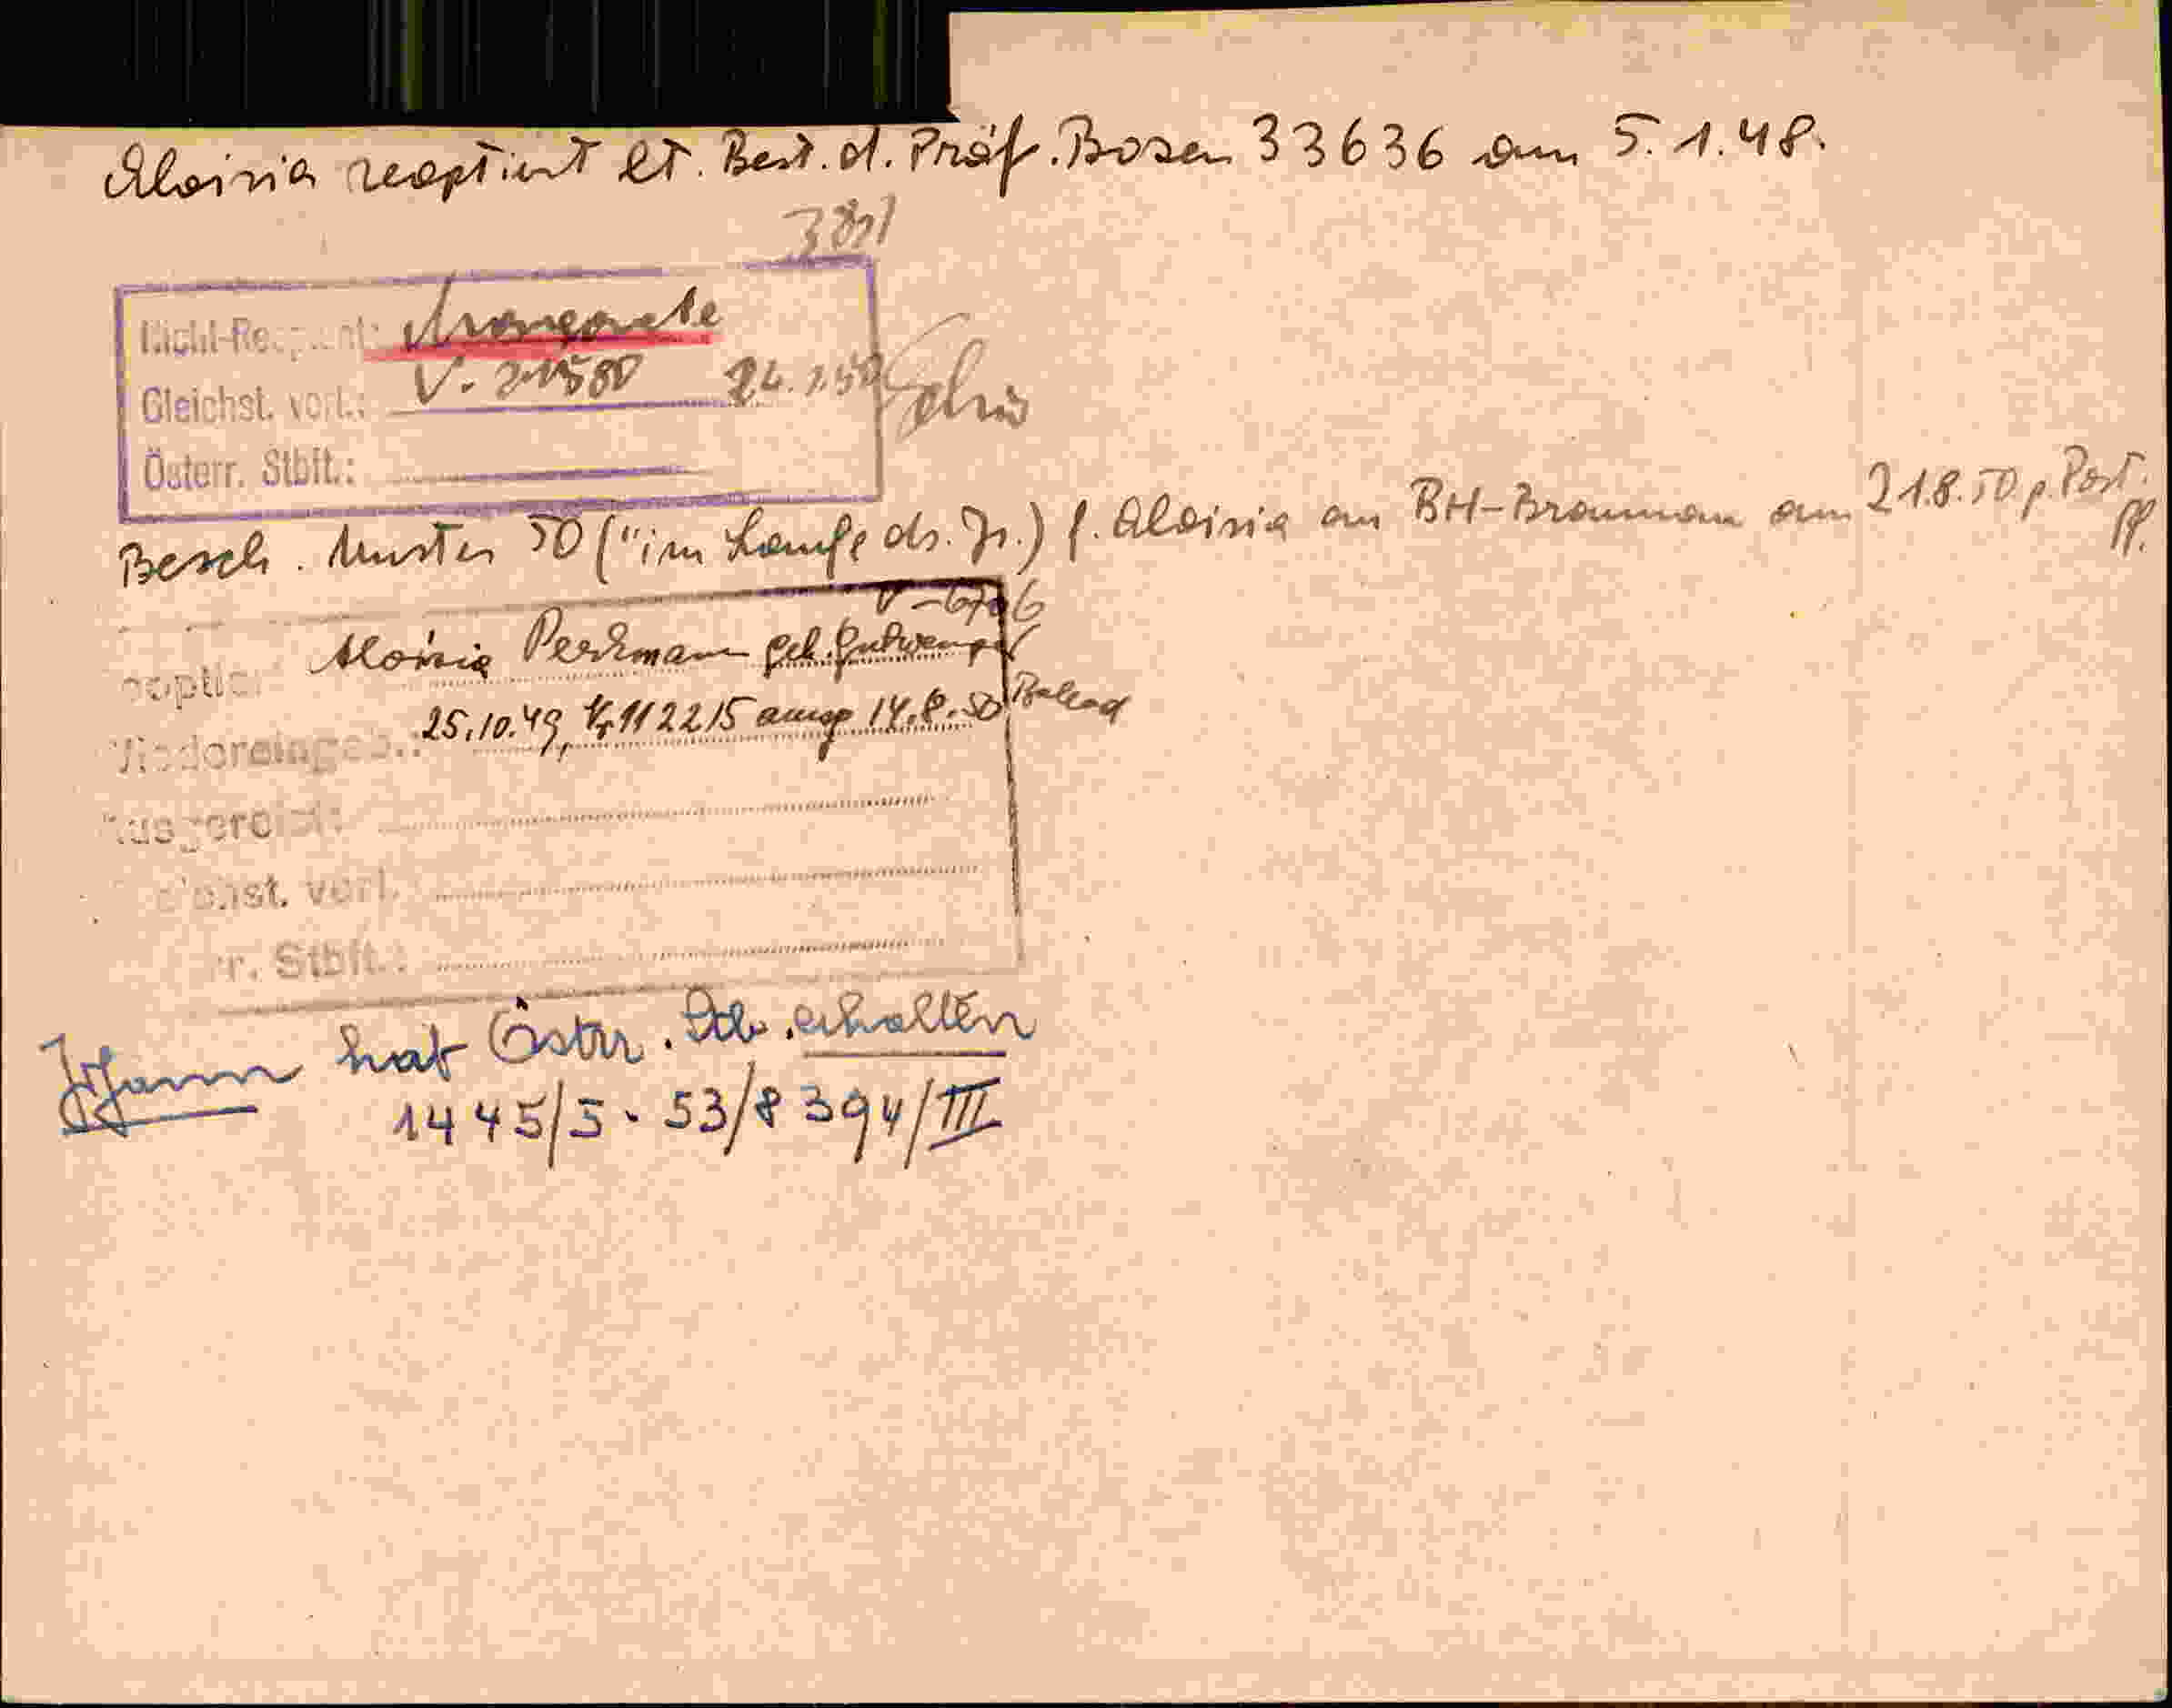 Aloisia reoptiert lt. Best. d. Präf. Bozen 33636 am 5.1.48.
Nicht-Reoptent: Margarete
Gleichst. vorl.: V. 24.
Österr. Stbft.:
Besch. Muster 50 ("im Laufe ds. Js.) f. Aloisia an BH-Braunau am 21.8.50 p. Post.
Aloisia Perkmann geb. Gutweniger
Wiedereingeb.: 25.10.49, 112215 ausg 14.8.50
Ausgereist:
Gleichst. vorl.
Österr. Stbft.:
Johann hat Östr. Stb. erhalten
1445/5-53/8394/III